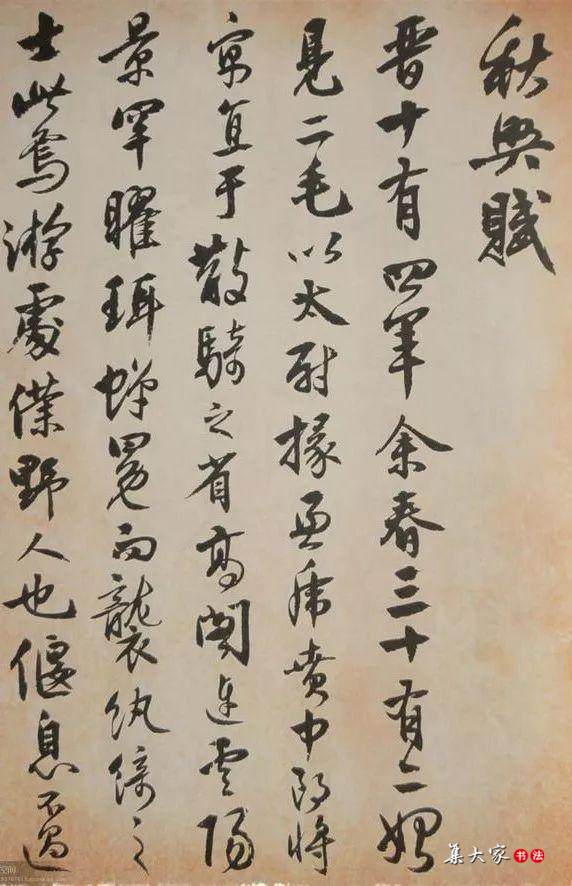 秋興賦
晉十有四年余春三十有二始
見二毛以太尉掾兼虎賁中郎將
寓直于散騎之省高閣連雲陽
景罕曜珥蟬冕而襲紈綺之
士此焉游處僕野人也偃息不過
集大家书法